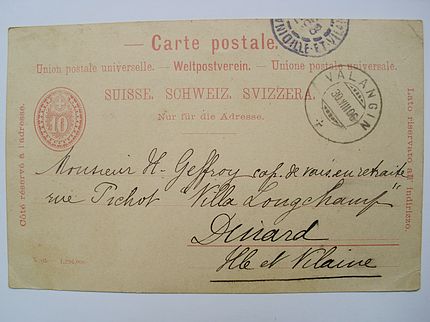 — Carte postale. —
Union postale universelle. — Weltpostverein. — Unione postale universale.
SUISSE. SCHWEIZ. SVIZZERA.
Nur für die Adresse.
Côté réservé à l'adresse.
10
Lato riservato all'indirizzo.
VALANGIN
30.VIII.06
ILLE-ET-VILAINE
Monsieur H. Geffroy cap. de vaiss en retraite
rue Pichot Villa Longchamp"
Dinard
Ille et Vilaine